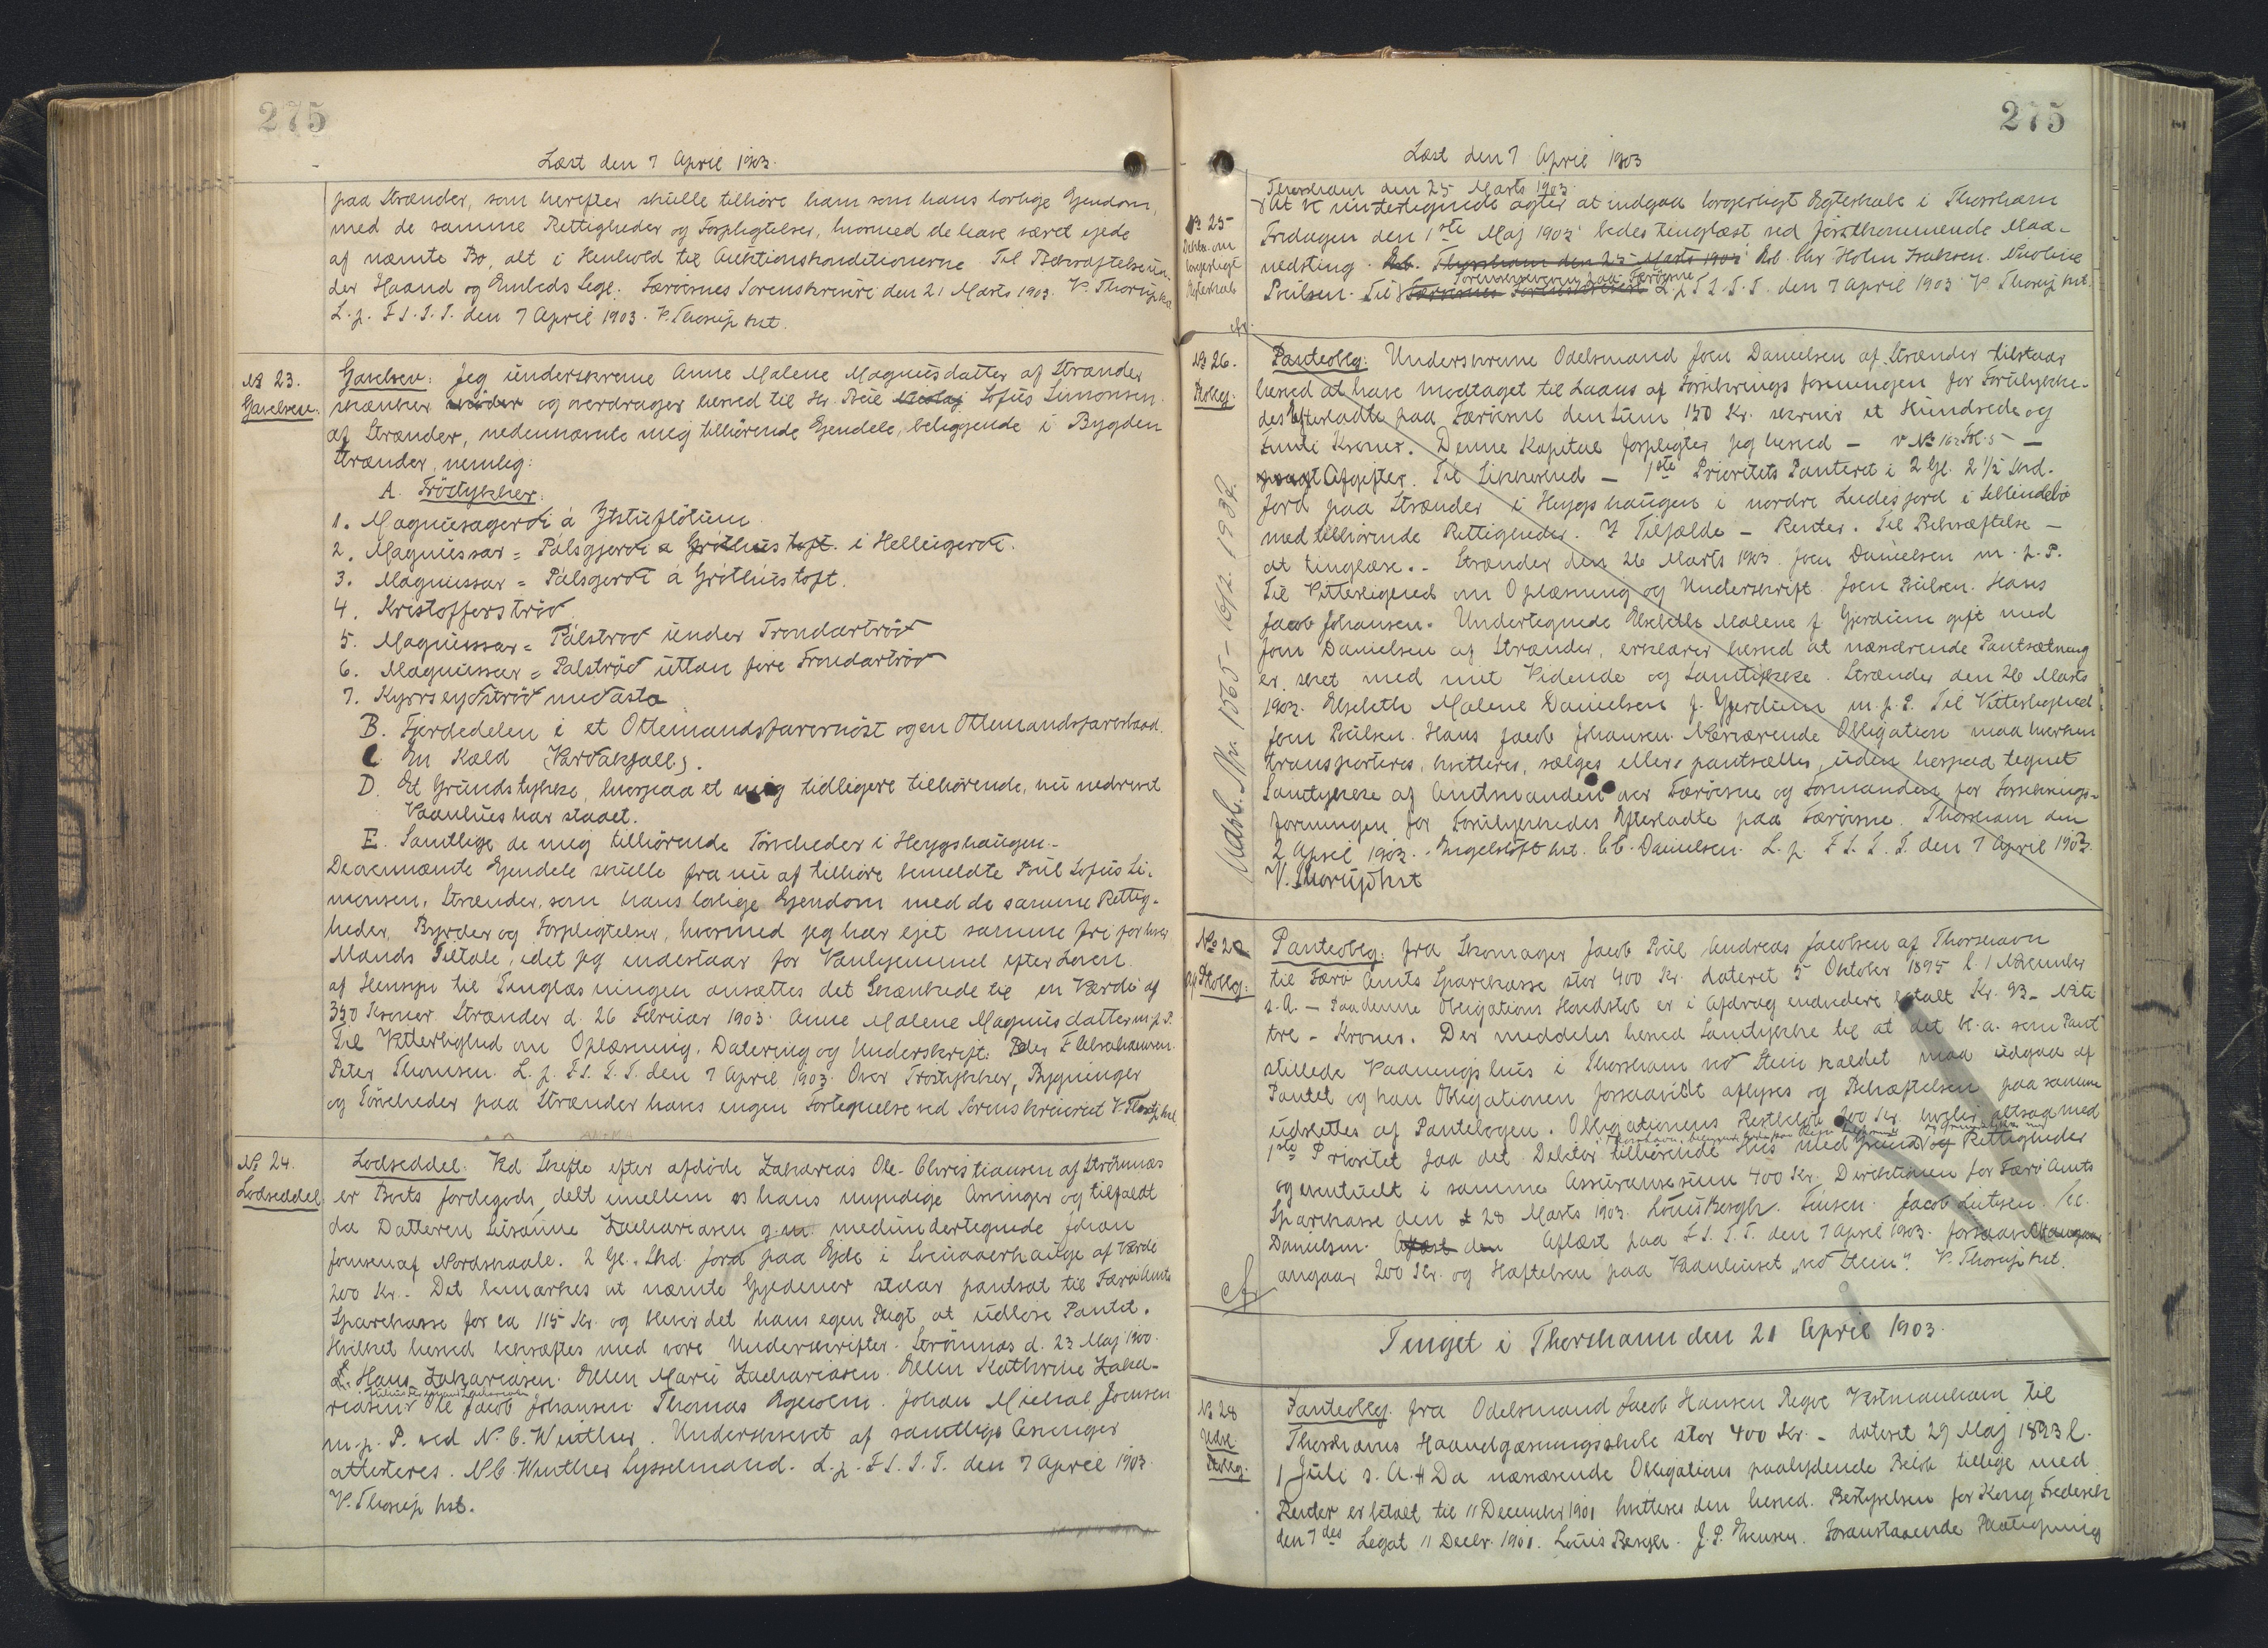 275
Læst den 7 April 1903.
paa Strænder, som herefter skulle tilhøre ham som hans lovlige Ejendom,
med de samme Rettigheder og Forpligtelser, hvormed de have været ejede
af nævnte Bo, alt i Henhold til Auktionskonditionerne. Til Bekræftelse un-
der Haand og Embeds Segl. Færøernes Sorenskriveri den 21 Marts 1903. V. Thorup kst
L. p. F S. T. T. den 7 April 1903. V. Thorup kst.
No 23.
Gavebrev.
Gavebrev: Jeg underskrevne Anne Malene Magnusdatter af Strænder
skænker skøder og overdrager herved til Hr. Poul Nicolaj Sofus Simonsen
af Strænder, nedennævnte mig tilhørende Ejendele, beliggende i Bygden
Strænder, nemlig:
A. Tröstykker:
1. Magnusagerði á Ytstuflötum
2. Magnussar = Pálsgjerði á Gróthústoft. i Hellugerði.
3. Magnussar = Pálsgerði á Gróthústoft.
4. Kristofferströð
5. Magnussar = Pálströð under Trondartröð
6. Magnussar = Pálströð uttan fyre Trondartröð
7. Kyrrseyðströð niðasta
B. Fjerdedelen i et Ottemandsfarsnöst og en Ottemandsfarsbaad.
C. En Kæld (Varðakjall).
D. Et Grundstykke, hvorpaa et mig tidligere tilhørende, nu nedrevet
Vaanhus har staaet.
E. Samtlige de mig tilhørende Tørvheder i Heygshaugen.-
De ovennævnte Ejendele skulle fra nu af tilhøre bemeldte Poul Sofus Si-
monsen, Strænder, som hans lovlige Ejendom med de samme Rettig-
heder, Byrder og Forpligtelser, hvormed jeg har ejet samme fri for hver
Mands Tiltale, idet jeg indestaar for Vanhjemmel efter Loven.
af Hensyn til Tinglæsningen ansættes det Skænkede til en Værdi af
350 Kroner. Strænder d. 26 Februar 1903. Anne Malene Magnusdatter m. p. P.
Til Vitterlighed om Oplæsning, Datering og Underskrift: Peder
Peter Thomsen. L. p. F S. T. T. den 7 April 1903. Over Tröstykker, Bygninger
og Tørvheder paa Strænder haves ingen Fortegnelse ved Sorenskriveriet V. Thorup kst.
No 24.
Lodseddel
Lodseddel. Ved Skifte efter afdøde Zakarias Ole-Christiansen af Strömnæs
er Boets Jordegods, delt imellem os hans myndige Arvinger og tilfaldt
da Datteren Susanne Zachariasen g. m. medundertegnede Johan
Joensen af Nordskaale. 2 Gl. Skd. Jord paa Ejde i af Værdi
200 Kr. - Det bemærkes at nævnte Gyldener staar pantsat til Færø Amts
Sparekasse for ca 115 Kr. og bliver det hans egen Pligt at udløse Pantet.
Hvilket herved bekræftes med vore Underskrifter. Strömnæs d. 23 Maj 1900.
Hans Zakariasen. Ellen Marie Zachariasen. Ellen Kathrine Zaka-
riasen. Jacob Johansen. Thomas. Johan Michal Joensen
m. p. P. ved N. C. Winther. Underskrevet af samtlige Arvinger
attesteres. N. C. Winther Sysselmand. L. p. F S. T. T. den 7 April 1903.
V. Thorup kst.
275
Læst den 7 April 1903
No 25
om
borgerligt
Ægteskab
Thorshavn den 25 Marts 1903.
At vi undertegnede agter at indgaa borgerligt Ægteskab i Thorshavn
Fredagen den 1ste Maj 1903 bedes tinglæst ved førstkommende Maa-
nedsting. Thorshavn den 25 Marts 1903 Chr Holm Isaksen. Nicoline
Poulsen. Til Sorenskriveren paa Færøerne L. p. F S. T. T. den 7 April 1903. V. Thorup kst.
No 26.
Pteblg.
Udsl. No. 1565 - 16/12. 1938.
Panteoblg: Underskrevne Odelsmand Joen Danielsen af Strænder tilstaar
herved at have modtaget til Laans af Forsikringsforeningen for Forulykke-
des Efterladte paa Færøerne den Sum 150 Kr. skriver et Hundrede og
Femti Kroner. Denne Kapital forpligter jeg herved - v No 162 Fol. 5 -
Afgifter. Til Sikkerhed - 1ste Prioritets Panteret i 2 Gl. 2 1/2 Skd.
Jord paa Strænder i Heygshaugen i nordre Ludesjord i
med tilhørende Rettigheder. I Tilfælde - Renter. Til Bekræftelse -
at tinglæse. - Strænder den 26 Marts 1903. Joen Danielsen m. p. P.
Til Vitterlighed om Oplæsning og Underskrift. Joen Poulsen. Hans
Jacob Johansen. Undertegnede Elsebeth Malene f. Gjerdum gift med
Joen Danielsen af Strænder, erklærer herved at nærværende Pantsætning
er skret med mit Vidende og Samtykke. Strænder den 26 Marts
1903. Elsebeth Malene Danielsen f. Gjerdum m. p. P. Til Vitterlighed:
Joen Poulsen. Hans Jacob Johansen. Nærværende Obligation maa hverken
transporteres, kvitteres, sælges eller pantsættes, uden herpaa tegnet
Samtykke af Amtmanden over Færøerne og Formanden for Forsikrings-
foreningen for Forulykkedes Efterladte paa Færøerne. Thorshavn den
2 April 1903. Engelstoft kst. C. C. Danielsen. L. p. F S. T. T. den 7 April 1903.
V. Thorup kst
No 27
Af Pteblg:
Panteoblg: fra Skomager Jacob Poul Andreas Jacobsen af Thorshavn
til Færø Amts Sparekasse stor 400 Kr. dateret 5 Oktober 1895 l. 1 November
s. A. - Paa denne Obligations Hovedstol er i Afdrag endvidere betalt Kr. 93 - Niti
tre - Kroner. Der meddeles herved Samtykke til at det bl. a. som Pant
stillede Vaaningshus i Thorshavn við Stein kaldet maa udgaa af
Pantet og kan Obligationen forsaavidt aflyses og Behæftelsen paa samme
udslettes af Pantebogen. Obligationens Restbeløb 200 Kr. altsaa med
1ste Prioritet paa det Debitor tilhørende Hus med Grund og Rettigheder
og eventuelt i samme Assurancesum 400 Kr. Direktionen for Færø Amts
Sparekasse den 28 Marts 1903. Louis Bergh. Finsen. Jacob Lützen. C. C.
Danielsen. Aflæst paa F S. T. T. den 7 April 1903. forsaavidt
angaar 200 Kr. og Hæftelsen paa Vaanhuset "við Stein". V. Thorup kst.
cfr
Tinget i Thorshavn den 21 April 1903.
No 28
Udsl.
Pteblg.
Panteoblg. fra Odelsmand Jacob Hansen Regve Vestmanhavn til
Thorshavns Haandgerningsskole stor 400 Kr. - dateret 29 Maj 1893 l.
1 Juli s. A. Da nærværende Obligations paalydende Beløb tillige med
Renter er betalt til 11 December 1901 kvitteres den herved. Bestyrelsen for Kong Frederik
den 7des Legat 11 Decbr. 1901. Louis Bergh. J. P. Foranstaaende Paategning